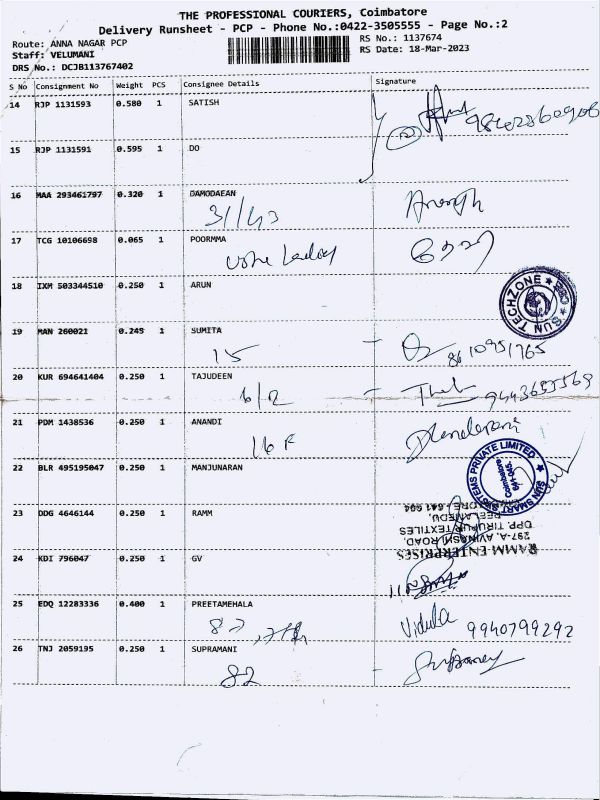 THE PROFESSIONAL COURIERS, Coimbatore
Delivery Runsheet - PCP - Phone No.:0422-3505555 - Page No.:2
Route: ANNA NAGAR PCP
Staff: VELUMANI
DRS No.: DCJB113767402
RS No.: 1137674
RS Date: 18-Mar-2023
S No Consignment No Weight PCS Consignee Details Signature
14 RJP 1131593 0.580 1 SATISH
15 RJP 1131591 0.595 1 DO
16 MAA 293461797 0.320 1 DAMODAEAN
31/43
17 TCG 10106698 0.065 1 POORMMA
18 IXM 503344510 0.250 1 ARUN
SUN TECHZONE ★ CBE ★
19 MAN 260021 0.245 1 SUMITA
15 - 8610951765
20 KUR 694641404 0.250 1 TAJUDEEN
6/2 -
21 PDM 1438536 0.250 1 ANANDI
16 F
22 BLR 495195047 0.250 1 MANJUNARAN
SUN SMART SYSTEMS PRIVATE LIMITED ★
Coimbatore
641 045.
23 DDG 4646144 0.250 1 RAMM
RAMM ENTERPRISES
297-A, AVINASHI ROAD,
OPP. TIRUPUR TEXTILES
PEELAMEDU,
24 KDI 796047 0.250 1 GV
25 EDQ 12283336 0.400 1 PREETAMEHALA
82, Vidula 9940799292
26 TNJ 2059195 0.250 1 SUPRAMANI
82 -